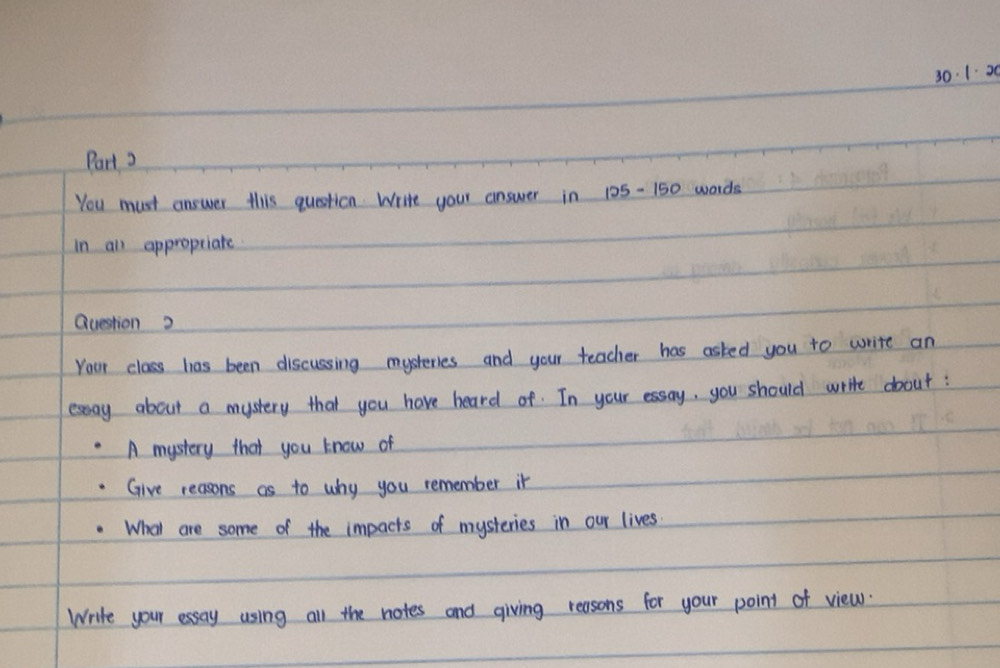 30.1.20
Part 2
You must answer this question. Write your answer in 125 - 150 words
in an appropriate.
Question 2
Your class has been discussing mysteries and your teacher has asked you to write an
essay about a mystery that you have heard of. In your essay, you should write about :
• A mystery that you know of
• Give reasons as to why you remember it
• What are some of the impacts of mysteries in our lives.
Write your essay using all the notes and giving reasons for your point of view.